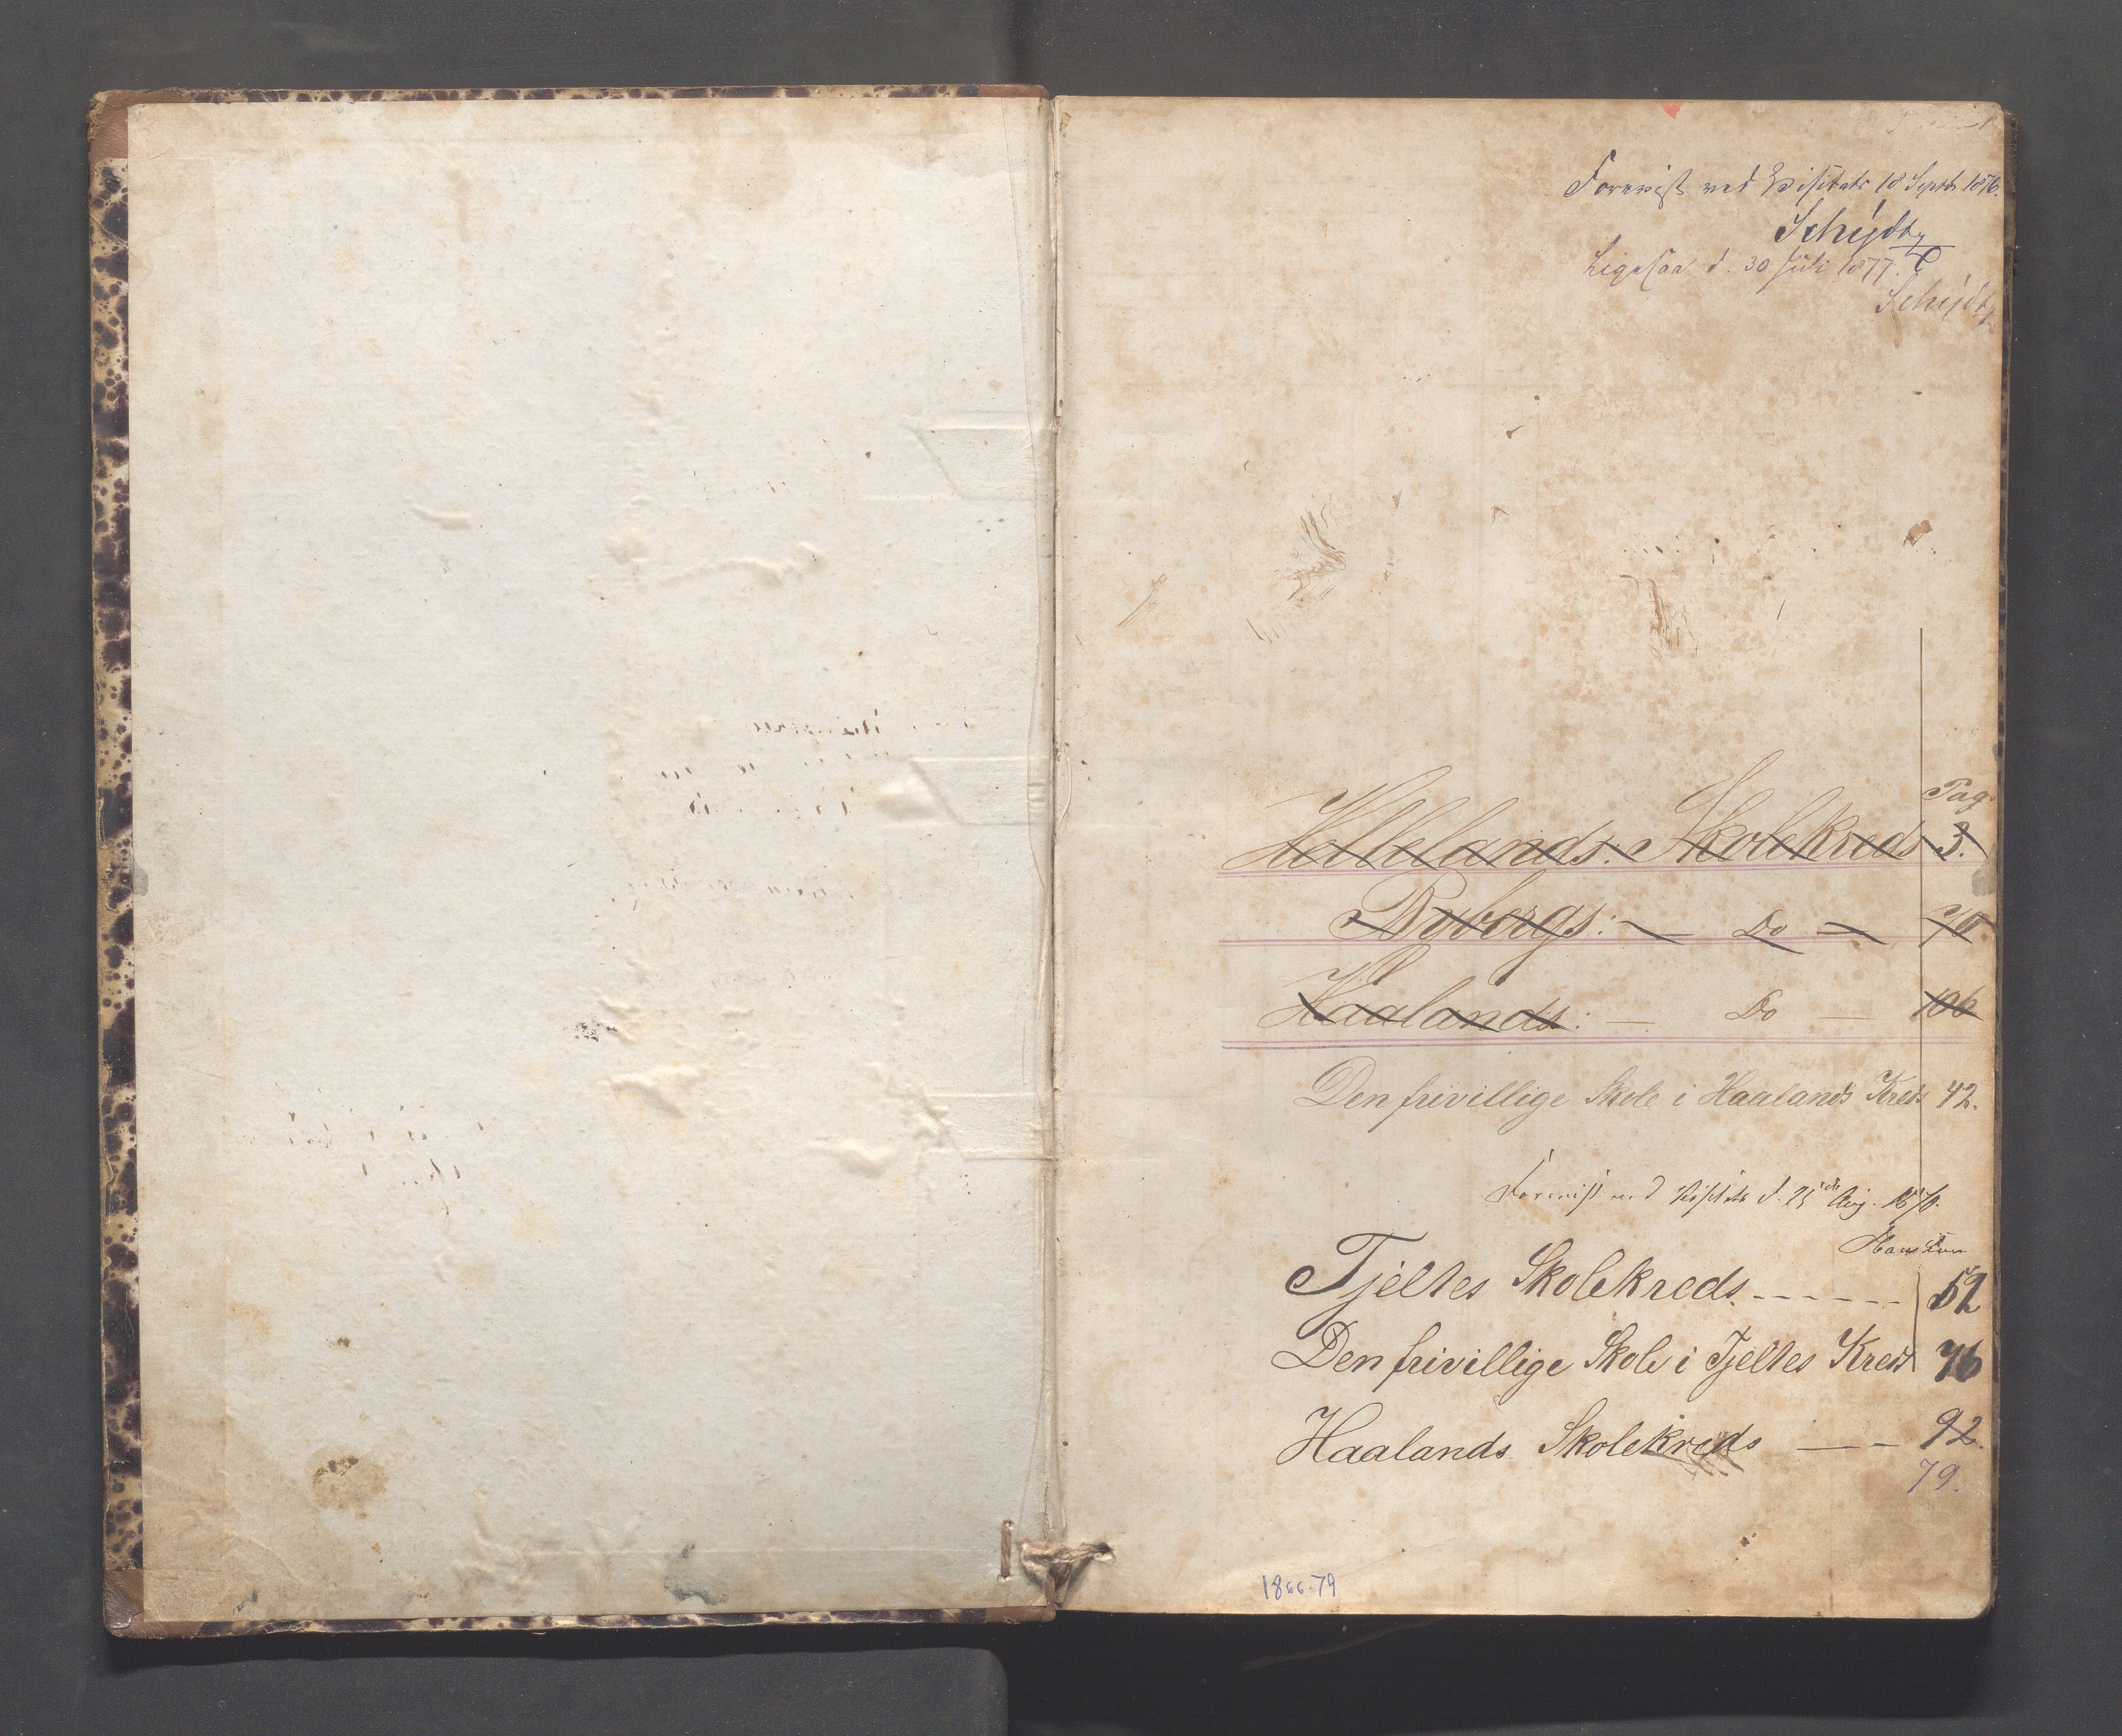 Forevist ved Visitats 18 Septb. 1876.
Schjødt
Ligesaa d. 30 Juli 1877.
Schjødt
Pag
Hellelands: Skolekreds 3.
Bybergs: — Do — 70.
Haalands: — Do — 106
Den frivillige Skole i Haalands Kreds 42.
Forevist ved Visitats d. 25de Aug. 1870.
Tjeltes Skolekreds. - - - - - - 52
Den frivillige Skole i Tjeltes Kreds 76
Haalands Skolekreds — - 92.
79.
1866-79